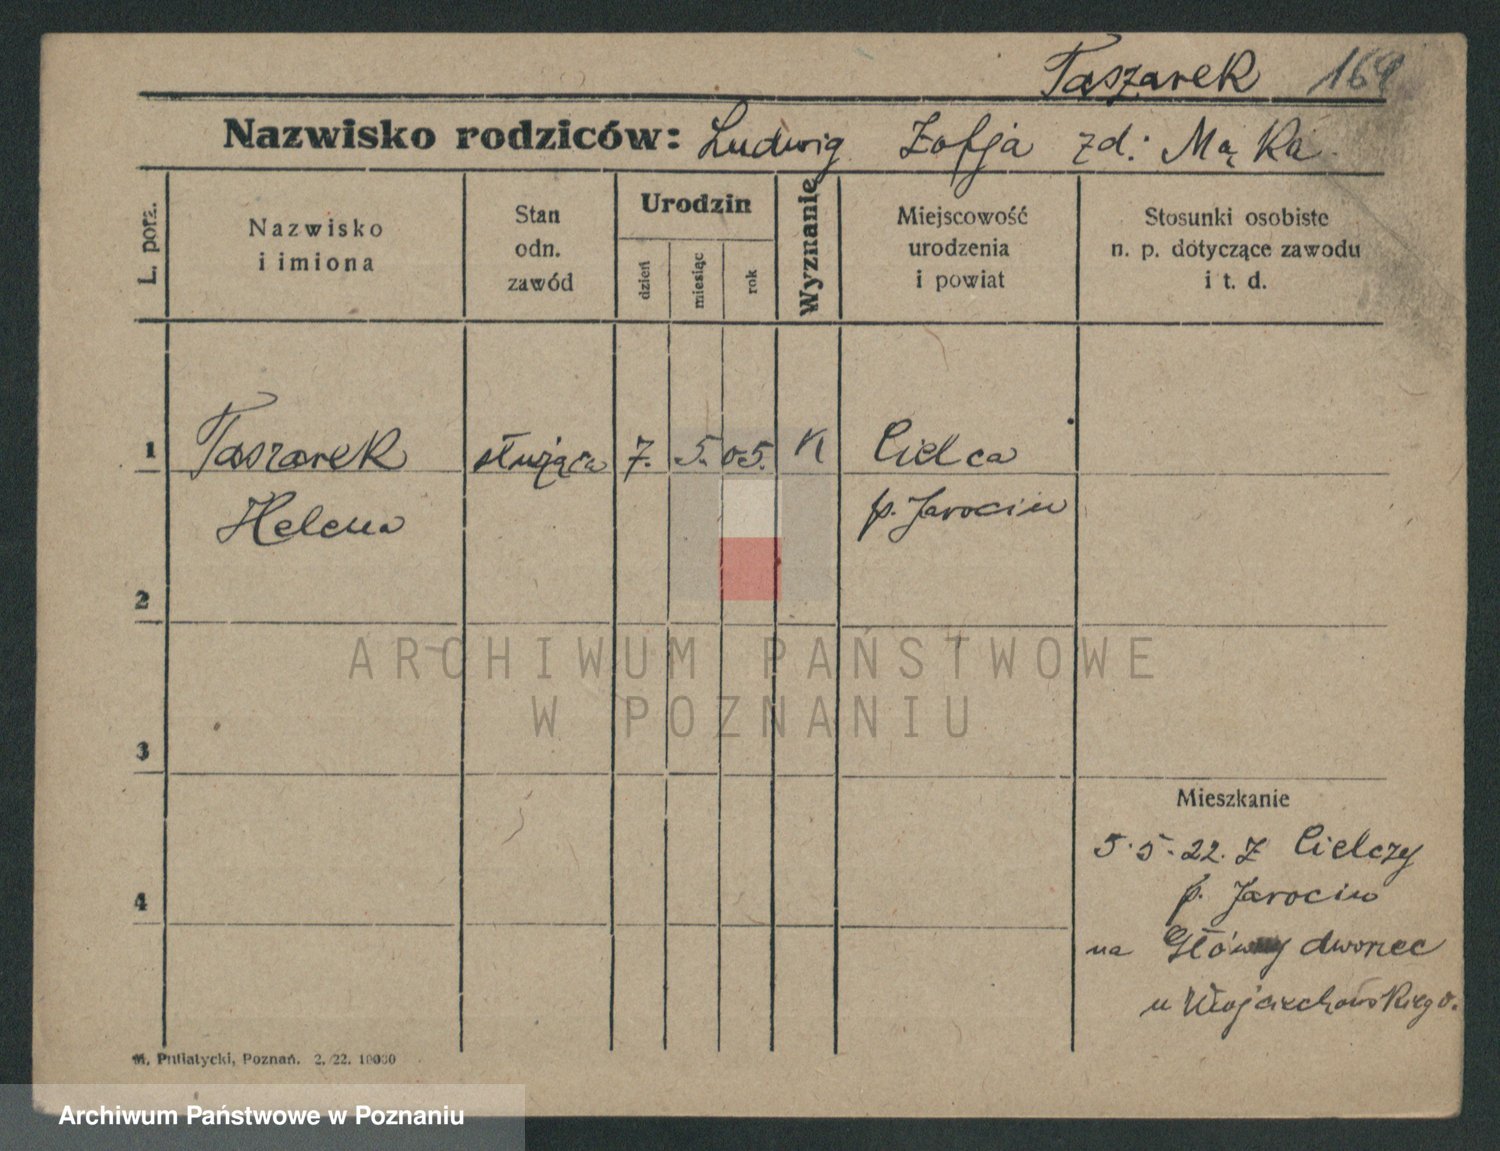 Taszarek 169
Nazwisko rodziców: Ludwig Zofja zd: Mąka
L. porz.
Nazwisko
i imiona
Stan
odn.
zawód
Urodzin
dzień
miesiąc
rok
Wyznanie
Miejscowość
urodzenia
i powiat
Stosunki osobiste
n. p. dotyczące zawodu
i t. d.
1 Taszarek służąca 7. 5. 05. K Cielca
Helena p. Jarocin
2
ARCHIWUM PAŃSTWOWE
W POZNANIU
3
Mieszkanie
5.5.22. Z Cielczy
4 p. Jarocin
na Główny dworzec
u Wojciechowskiego.
M. Putiatycki, Poznań. 2. 22. 10000
Archiwum Państwowe w Poznaniu